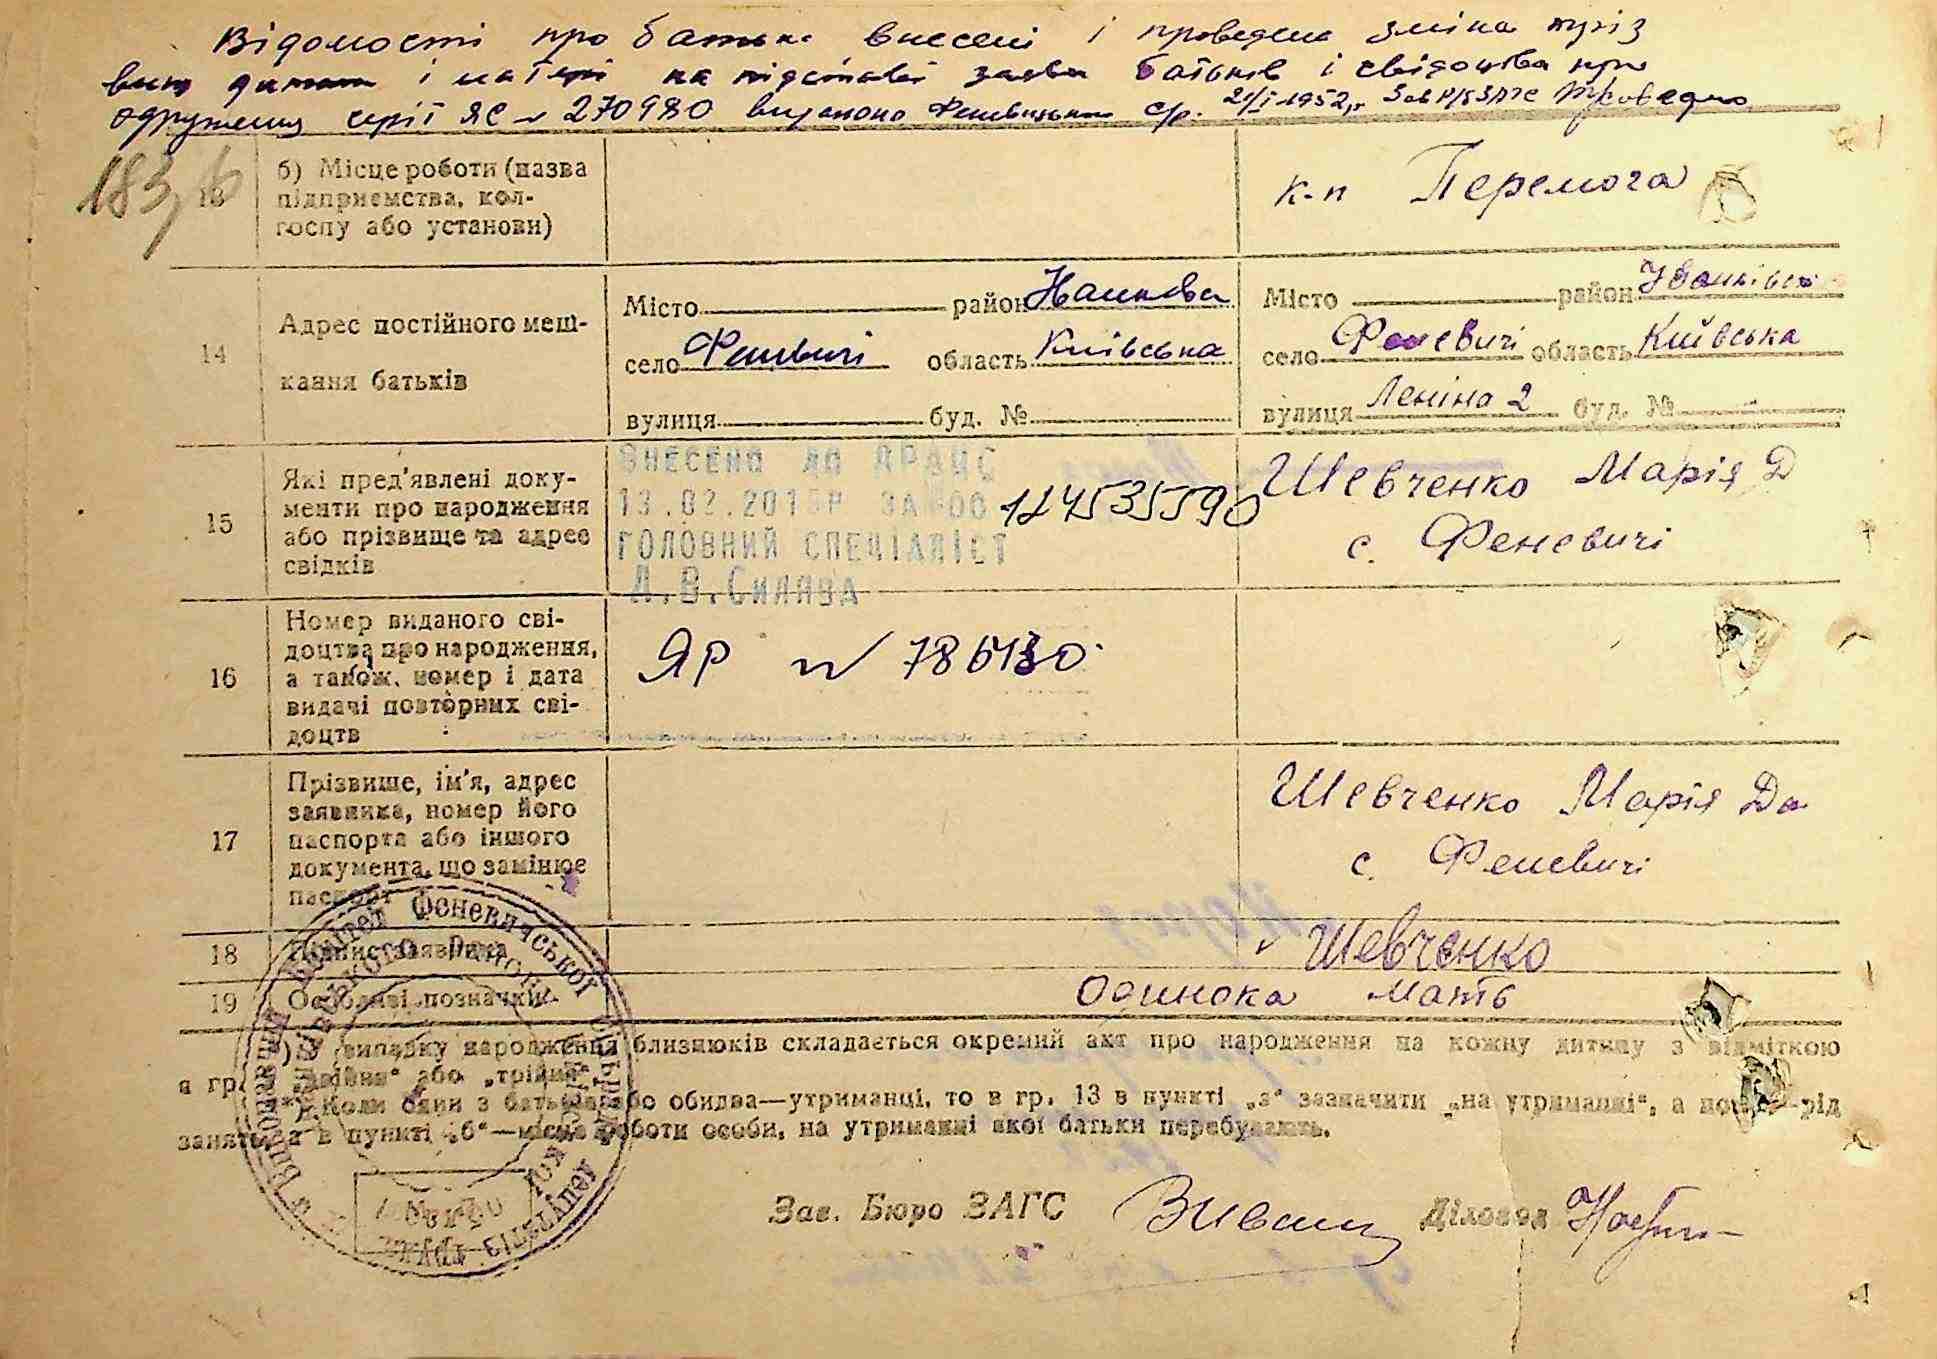 Відомості про батька внесені і проведена зміна пріз
вищ дитини і матері на підставі заяви батьків і свідоцтва про
одруження серії ЯС № 270980 виданого Феневицькою с/р. 21/I 1952 р.
183
13 б) Місце роботи (назва підприємства, кол-
госпу або установи)
к-п Перемога
14 Адрес постійного меш-
кання батьків
Місто район
село Феневичі область Київська
вулиця буд. №
Місто район Іванківськ
село Феневичі область Київська
вулиця Леніна 2 буд. №
15 Які пред'явлені доку-
менти про народження
або прізвище та адрес
свідків
ВНЕСЕНО ДО ДРАЦС
13.02.2015Р ЗА
ГОЛОВНИЙ СПЕЦІАЛІСТ
Шевченко Марія Д
с. Феневичі
16 Номер виданого сві-
доцтва про народження,
а також, номер і дата
видачі повторних сві-
доцтв
ЯР №
17 Прізвище, ім'я, адрес
заявника, номер його
паспорта або іншого
документа, що замінює
паспорт
Шевченко Марія Да
с. Феневичі
18 Підпис заявника
Шевченко
19 Особливі позначки
Одинока мать
випадку народження близнюків складається окремий акт про народження на кожну дитину з відміткою
в гр. „двійня“ або „трійня“
**) Коли один з батьків або обидва—утриманці, то в гр. 13 в пункті „з“ зазначити „на утриманні“, а рід
заняття в пункті „б“—місце роботи особи, на утриманні якої батьки перебувають.
Зав. Бюро ЗАГС Діловод